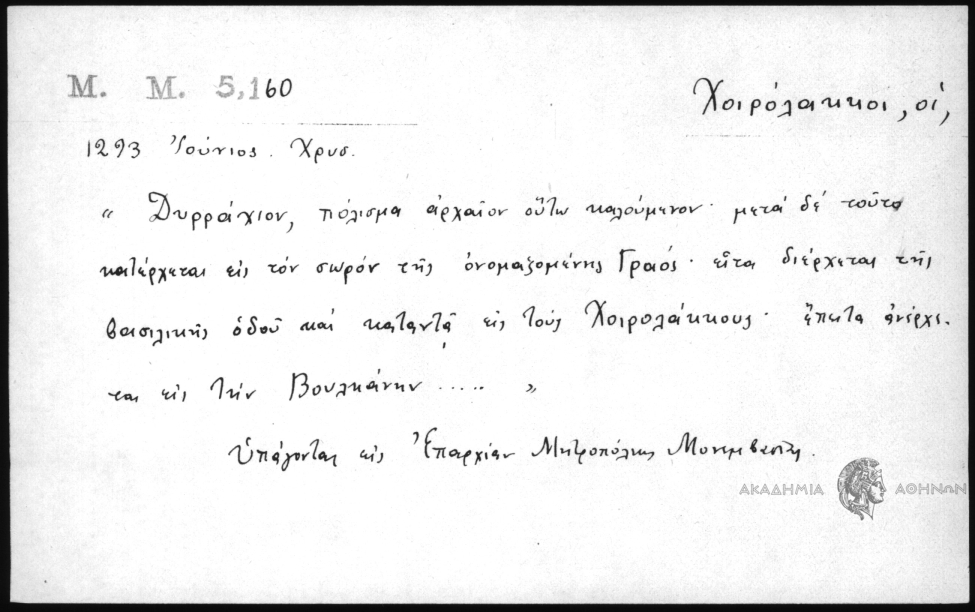 Μ. Μ. 5,160
Χοιρόλακκοι, οἱ,
1293 Ἰούνιος. Χρυσ.
" Δυρράχιον, πόλισμα ἀρχαῖον οὕτω καλούμενον· μετά δέ τοῦτο
κατέρχεται εἰς τόν σωρόν τῆς ὀνομαζομένης Γραός· εἶτα διέρχεται τῆς
βασιλικῆς ὁδοῦ καί καταντᾷ εἰς τούς Χοιρολάκκους· ἔπειτα ἀνέρχε-
ται εἰς τήν Βουλκάνην ..... "
Ὑπάγονται εἰς Ἐπαρχίαν Μητροπόλεως Μονεμβασίας.
ΑΚΑΔΗΜΙΑ ΑΘΗΝΩΝ